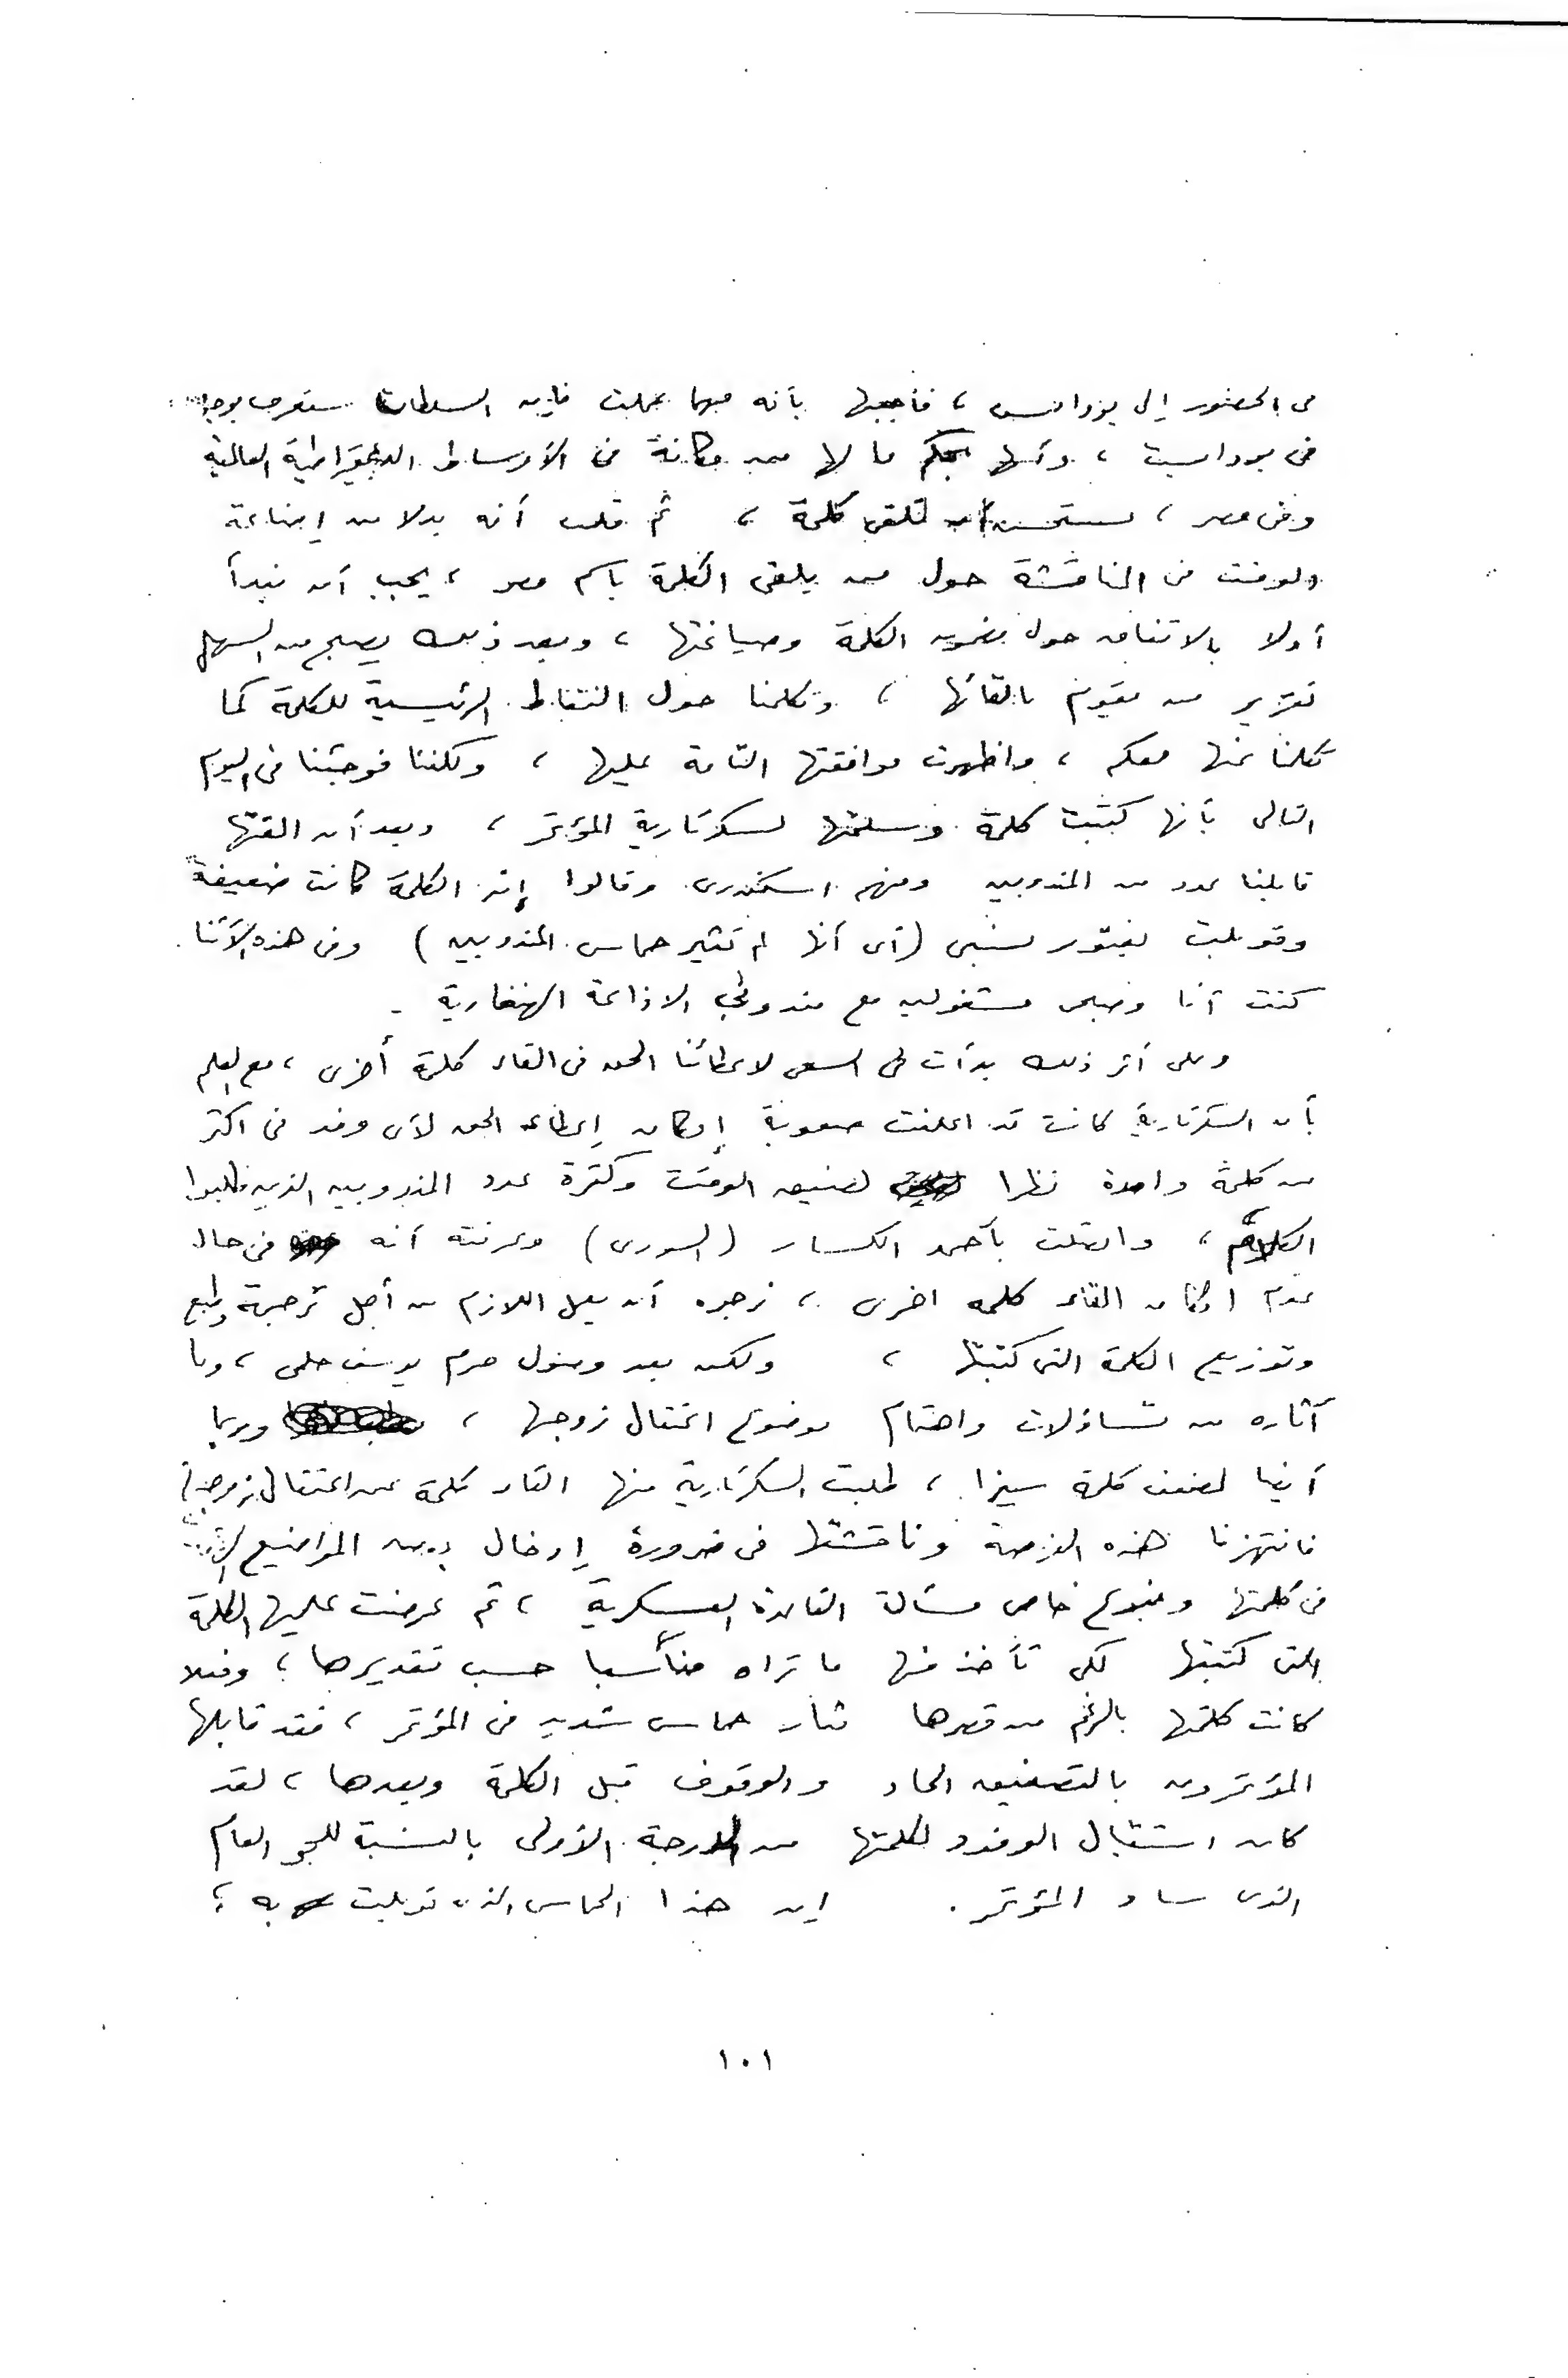 فى الحضور إلى بودابست ، فأجبتها بأنه مهما عملت فإن السلطات ستعرف
فى بودابست ، وأنها بحكم ما لها من مكانة فى الأوساط الديمقراطية العالمية
وفى مصر ، يستحسن أن تلقى كلمة ، ثم قلت أنه بدلا من إضاعة
الوقت فى المناقشة حول من يلقى الكلمة باسم مصر ، يجب أن نبدأ
أولا بالاتفاق حول مضمون الكلمة وصياغتها ، وبعد ذلك يصبح من السهل
تقرير من يقوم بالقائها ، وتكلمنا حول النقاط الرئيسية للكلمة كما
تكلمنا عنها معكم ، واظهرت موافقتها التامة عليها ، ولكننا فوجئنا فى اليوم
التالى بأنها كتبت كلمة وسلمتها لسكرتارية المؤتمر ، وبعد أن القتها
قابلنا عدد من المندوبين ومنهم اسكندرى وقالوا إن الكلمة كانت ضعيفة
وقوبلت بفتور نسبى (أى أنها لم تثير حماس المندوبين) وفى هذه الأثنا
كنت أنا وصبحى مشغولين مع مندوبى الاذاعة الهنغارية .
وعلى أثر ذلك بدأت فى السعى لاعطائنا الحق فى القاء كلمة أخرى ، مع العلم
بأن السكرتارية كانت قد اعلنت صعوبة إمكان إعطاء الحق لأى وفد فى اكثر
من كلمة واحدة نظرا لضيق الوقت وكثرة عدد المندوبين الذين طلبوا
الكلام ، واتصلت بأحمد الكسار (السورى) وعرفته أنه فى حال
عدم امكان القاء كلمه اخرى ، نرجوه أن يعمل اللازم من أجل ترجمة وطبع
وتوزيع الكلمة التى كتبتها ، ولكن بعد وصول حرم يوسف حلمى ، وما
أثاره من تساؤلات واهتمام موضوع اعتقال زوجها ، وربما
أيضا لضعف كلمة سيزا ، طلبت السكرتارية منها القاء كلمة عن اعتقال زوجها
فانتهزنا هذه الفرصة وناقشتها فى ضرورة إدخال بعض المواضيع
فى كلمتها وبنوع خاص مسألة القاعدة العسكرية ، ثم عرضت عليها الكلمة
التى كتبتها لكى تأخذ منها ما تراه مناسبا حسب تقديرها ، وفعلا
كانت كلمتها بالرغم من قصرها مثار حماس شديد فى المؤتمر ، فقد قابلها
المؤتمرون بالتصفيق الحاد والوقوف قبل الكلمة وبعدها ، لقد
كان استقبال الوفود لكلمتها من الدرجة الأولى بالنسبة للجو العام
الذى ساد المؤتمر . إن هذا الحماس الذى قوبلت به ،
١٠١